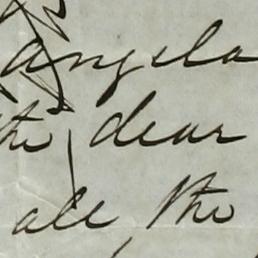 angels
the dear
all, the